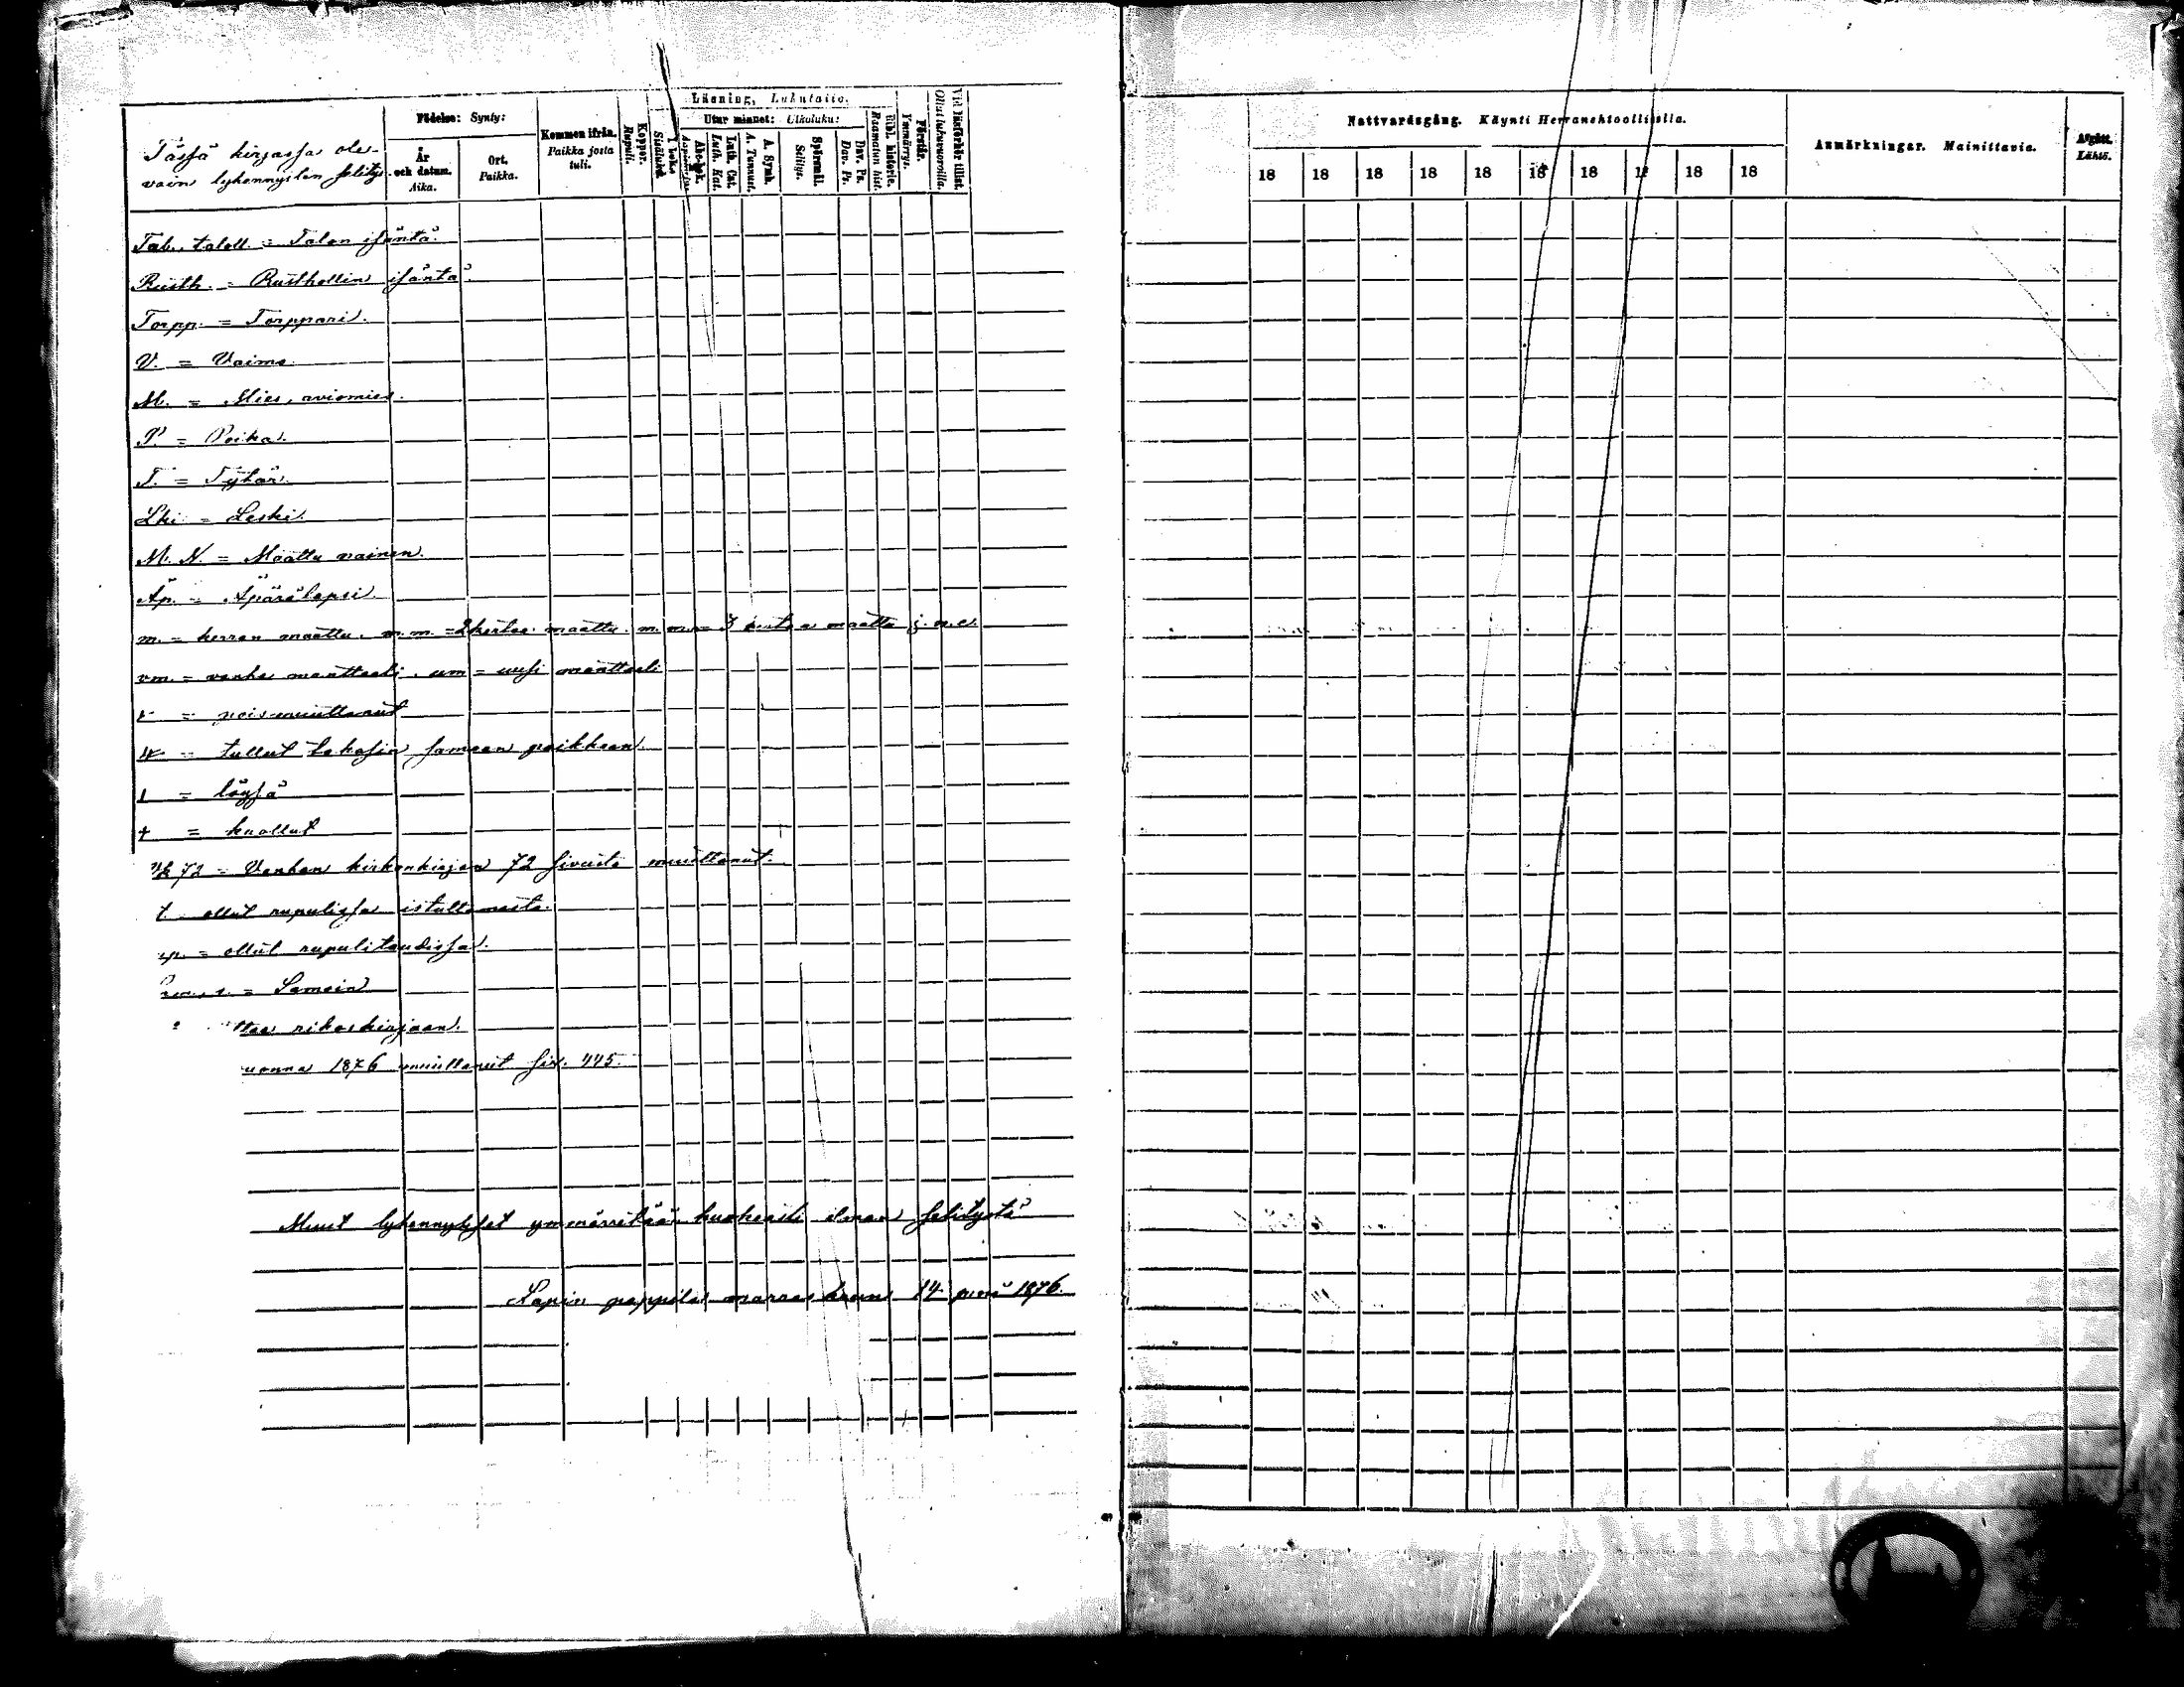 Tässä kirjassa ole-
vain lyhennysten selitys.
Födelse: Synty:
År och datum. Aika.
Ort. Paikka.
Kommen ifrån. Paikka josta tuli.
Koppor. Rupuli.
I boken Sisäluku.
Läsning, Lukutaito.
Utur minnet: Ulkoluku:
Abc-bok. Aapiskirja.
Luth. Cat. Luth. Kat.
A. Symb. A. Tunnust.
Spörsmål. Selitys.
Dav. Ps. Dav. Ps.
Bibl. historie. Raamatun hist.
Förstår. Ymmärrys.
Vid läsförhör tillst. Ollut lukuvuorolla.
Tal. taloll. = Talon isäntä.
Rusth. = Rusthollin isäntä.
Torpp. = Torppari.
V. = Vaimo.
M. = Mies, aviomies.
P. = Poika.
T. = Tytär.
Lki = Leski.
M. N. = Maattu nainen.
Äp. = Äpärälapsi.
m. = kerran maattu. m.m. = 2 kertaa maattu. m.m.m = 3 kertaa maattu j.n.e.
vm. = vanha maattaali. um = uusi maattaali
= poismuuttanut
= tullut takasin samaan paikkaan.
= löysä
† = kuollut
72 = Vanhan kirkonkirjan 72 sivulta muuttanut.
ollut rupulissa istuttamasta.
= ollut rupulitaudissa.
= Samoin
rikoskirjaan.
vuonna 1876 muuttanut siv. 445.
Muut lyhennykset ymmärretään huokeasti ilman selitystä
Lapin pappila marraskuun 14 pnä 1876.
Nattvardsgång. Käynti Herranehtoollisella.
18 18 18 18 18 18 18 18 18 18
Anmärkningar. Mainittavia.
Afgått. Lähtö.